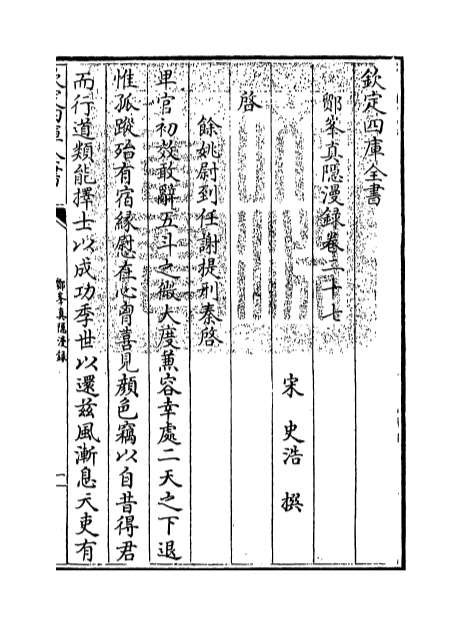 欽定四庫全書
鄮峯真隠漫録卷二十七
宋 史浩 撰
啓
餘姚尉到任謝提刑秦啓
卑官初效敢辭五斗之微大度兼容幸處二天之下退
惟孤蹤殆有宿緣慰存心胷喜見顔色竊以自昔得君
而行道類能擇士以成功季世以還兹風漸息天吏有
鄮峯真隠漫録
一